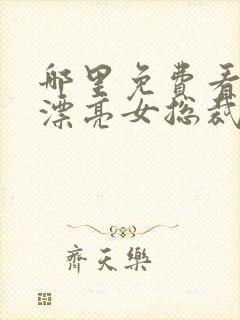 哪里免费看
漂亮女总裁
齊天樂